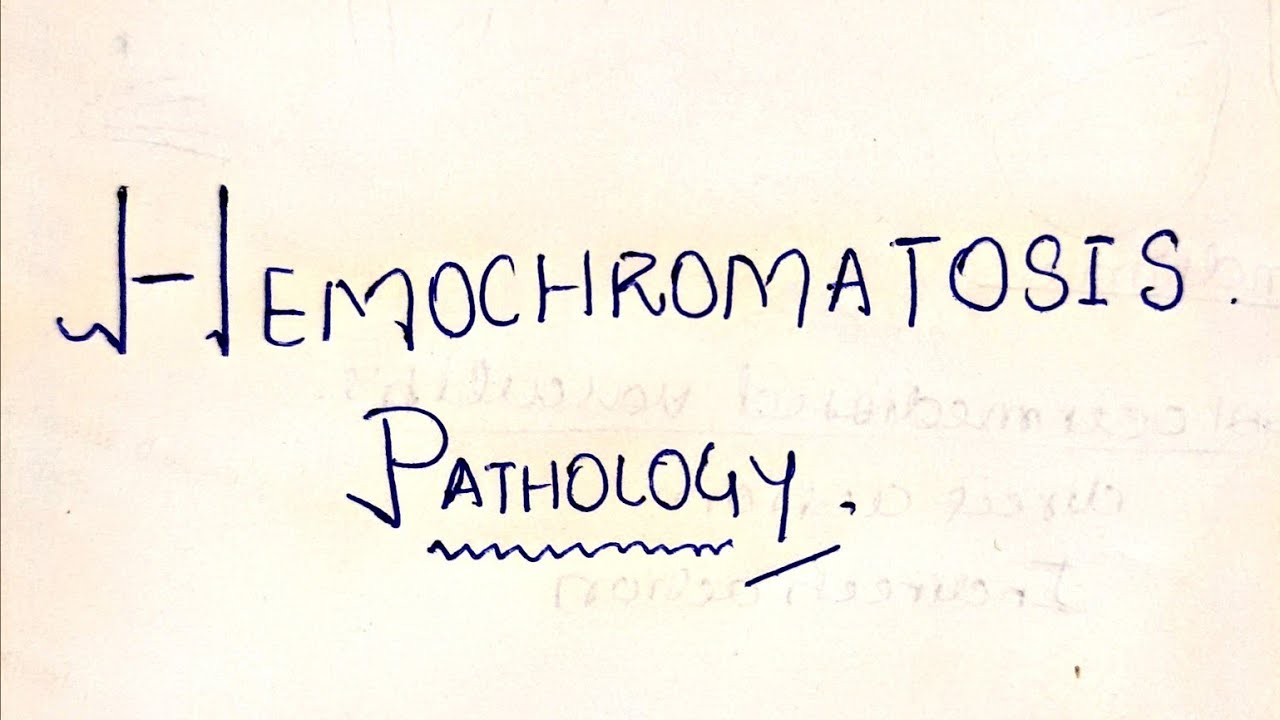 HEMOCHROMATOSIS.
PATHOLOGY.